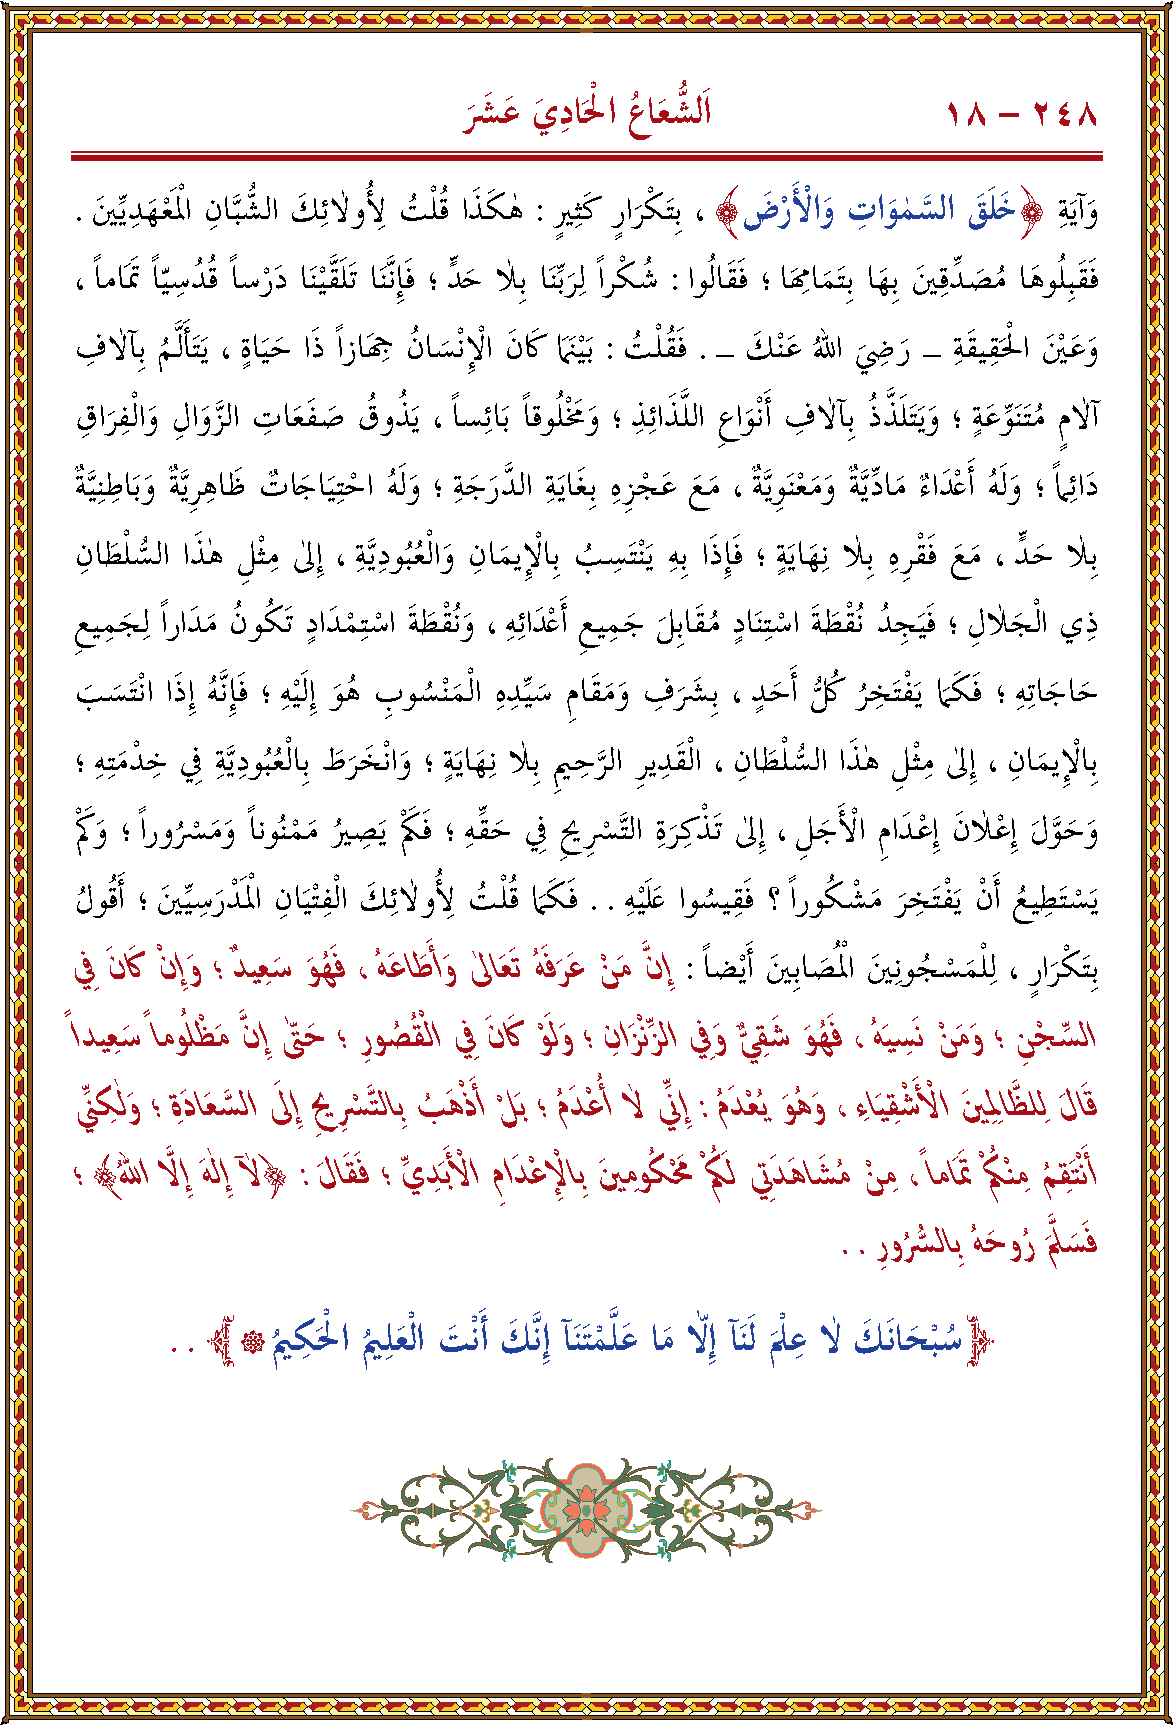 ٢٤٨ – ١٨ اَلشُّعَاعُ الْحَادِيَ عَشَرَ
وَآيَةِ ﴿خَلَقَ السَّمٰوَاتِ وَالْأَرْضَ﴾ ، بِتَكْرَارٍ كَثِيرٍ : هٰكَذَا قُلْتُ لِأُولاٰئِكَ الشُّبَّانِ الْمَعْهَدِيِّينَ .
فَقَبِلُوهَا مُصَدِّقِينَ بِهَا بِتَمَامِهَا ؛ فَقَالُوا : شُكْراً لِرَبِّنَا بِلاٰ حَدٍّ ؛ فَإِنَّنَا تَلَقَّيْنَا دَرْساً قُدُسِيّاً تَمَاماً ،
وَعَيْنَ الْحَقِيقَةِ – رَضِيَ اللهُ عَنْكَ – . فَقُلْتُ : بَيْنَمَا كَانَ الْإِنْسَانُ جِهَازاً ذَا حَيَاةٍ ، يَتَأَلَّمُ بِآلاٰفِ
آلاٰمٍ مُتَنَوِّعَةٍ ؛ وَيَتَلَذَّذُ بِآلاٰفِ أَنْوَاعِ اللَّذَائِذِ ؛ وَمَخْلُوقاً بَائِساً ، يَذُوقُ صَفَعَاتِ الزَّوَالِ وَالْفِرَاقِ
دَائِماً ؛ وَلَهُ أَعْدَاءٌ مَادِّيَةٌ وَمَعْنَوِيَّةٌ ، مَعَ عَجْزِهِ بِغَايَةِ الدَّرَجَةِ ؛ وَلَهُ احْتِيَاجَاتٌ ظَاهِرِيَّةٌ وَبَاطِنِيَّةٌ
بِلاٰ حَدٍّ ، مَعَ فَقْرِهِ بِلاٰ نِهَايَةٍ ؛ فَإِذَا بِهِ يَنْتَسِبُ بِالْإِيمَانِ وَالْعُبُودِيَّةِ ، إِلٰى مِثْلِ هٰذَا السُّلْطَانِ
ذِي الْجَلاٰلِ ؛ فَيَجِدُ نُقْطَةَ اسْتِنَادٍ مُقَابِلَ جَمِيعِ أَعْدَائِهِ ، وَنُقْطَةَ اسْتِمْدَادٍ تَكُونُ مَدَاراً لِجَمِيعِ
حَاجَاتِهِ ؛ فَكَمَا يَفْتَخِرُ كُلُّ أَحَدٍ ، بِشَرَفِ وَمَقَامِ سَيِّدِهِ الْمَنْسُوبِ هُوَ إِلَيْهِ ؛ فَإِنَّهُ إِذَا انْتَسَبَ
بِالْإِيمَانِ ، إِلٰى مِثْلِ هٰذَا السُّلْطَانِ ، الْقَدِيرِ الرَّحِيمِ بِلاٰ نِهَايَةٍ ؛ وَانْخَرَطَ بِالْعُبُودِيَّةِ فِي خِدْمَتِهِ ؛
وَحَوَّلَ إِعْلاٰنَ إِعْدَامِ الْأَجَلِ ، إِلٰى تَذْكِرَةِ التَّسْرِيحِ فِي حَقِّهِ ؛ فَكَمْ يَصِيرُ مَمْنُوناً وَمَسْرُوراً ؛ وَكَمْ
يَسْتَطِيعُ أَنْ يَفْتَخِرَ مَشْكُوراً ؟ فَقِيسُوا عَلَيْهِ . . فَكَمَا قُلْتُ لِأُولاٰئِكَ الْفِتْيَانِ الْمَدْرَسِيِّينَ ؛ أَقُولُ
بِتَكْرَارٍ ، لِلْمَسْجُونِينَ الْمُصَابِينَ أَيْضاً : إِنَّ مَنْ عَرَفَهُ تَعَالٰى وَأَطَاعَهُ ، فَهُوَ سَعِيدٌ ؛ وَإِنْ كَانَ فِي
السِّجْنِ ؛ وَمَنْ نَسِيَهُ ، فَهُوَ شَقِيٌّ وَفِي الزِّنْزَانِ ؛ وَلَوْ كَانَ فِي الْقُصُورِ ؛ حَتّٰى إِنَّ مَظْلُوماً سَعِيداً
قَالَ لِلظَّالِمِينَ الْأَشْقِيَاءِ ، وَهُوَ يُعْدَمُ : إِنِّي لاٰ أُعْدَمُ ؛ بَلْ أَذْهَبُ بِالتَّسْرِيحِ إِلَى السَّعَادَةِ ؛ وَلٰكِنِّي
أَنْتَقِمُ مِنْكُمْ تَمَاماً ، مِنْ مُشَاهَدَتِي لَكُمْ مَحْكُومِينَ بِالْإِعْدَامِ الْأَبَدِيِّ ؛ فَقَالَ : ﴿لاٰۤ إِلٰهَ إِلَّا اللهُ﴾ ؛
فَسَلَّمَ رُوحَهُ بِالسُّرُورِ . .
﴿سُبْحَانَكَ لاٰ عِلْمَ لَنَآ إِلاّٰ مَا عَلَّمْتَنَآ إِنَّكَ أَنْتَ الْعَلِيمُ الْحَكِيمُ﴾ . .